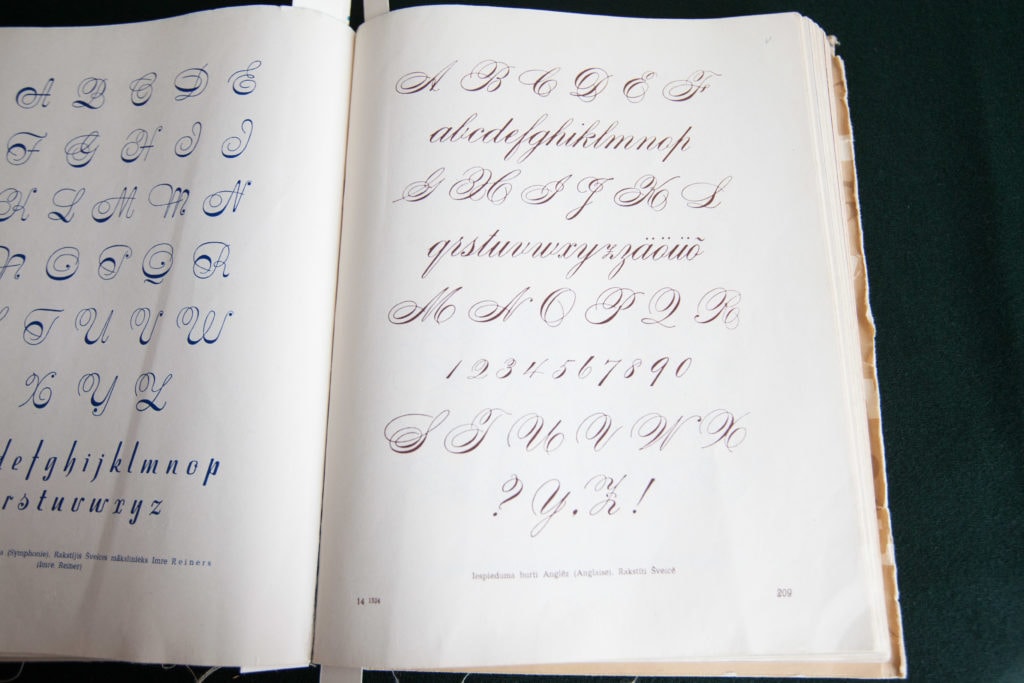 A B C D E
F G H I J
K L M M N
N O P Q R
T U V W
X Y Z
defghijklmnop
rstuvwxyz
a (Symphonie). Rakstījis Šveices mākslinieks Imre Reiners
(Imre Reiner)
A B C D E F
abcdefghiklmnop
G H I J K L
qrstuvwxyzzäöüõ
M N O P Q R
1 2 3 4 5 6 7 8 9 0
S T U V W X
? Y . Z !
Iespieduma burti Anglēz (Anglaise). Rakstīti Šveicē
14 1524
209